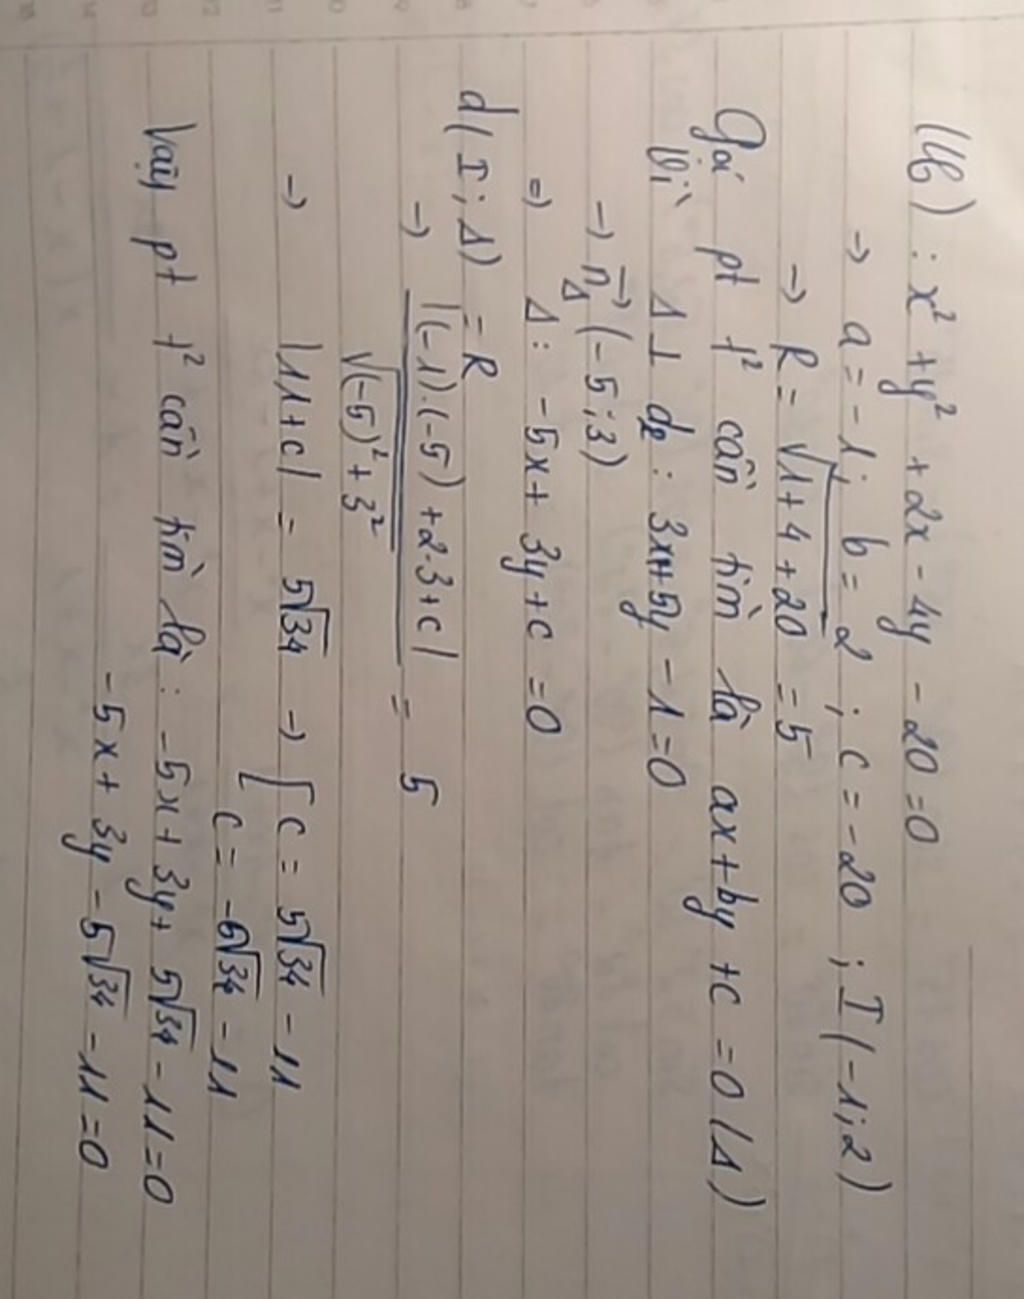 (C) : x² + y² + 2x - 4y - 20 = 0
→ a = -1; b = 2 ; c = -20 ; I(-1;2)
→ R = √1+4+20 = 5
Gọi pt t² cần tìm là ax + by + c = 0 (Δ)
Vì Δ ⊥ d₂ : 3x + 5y - 1 = 0
→ n⃗Δ (-5;3)
⇒ Δ: -5x + 3y + c = 0
d(I;Δ) = R
→ |(-1).(-5) + 2.3 + c| / √(-5)² + 3² = 5
→ |11+c| = 5√34 → [ c = 5√34 - 11
c = -5√34 - 11
Vậy pt t² cần tìm là : -5x + 3y + 5√34 - 11 = 0
-5x + 3y - 5√34 - 11 = 0